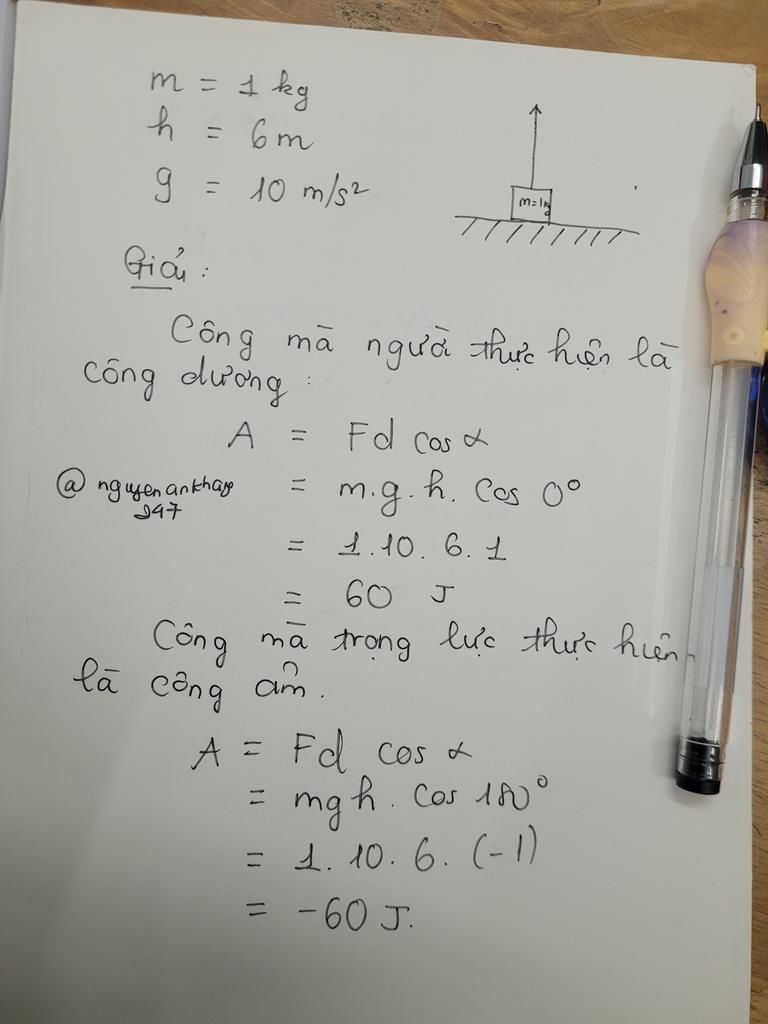 m = 1 kg
h = 6m
g = 10 m/s²
m=1kg
Giải:
Công mà người thực hiện là
công dương:
A = Fd cos α
@nguyenankhap
247
= m.g.h. cos 0°
= 1.10.6.1
= 60 J
Công mà trọng lực thực hiện
là công âm.
A = Fd cos α
= mgh. cos 180°
= 1.10.6.(-1)
= -60 J.